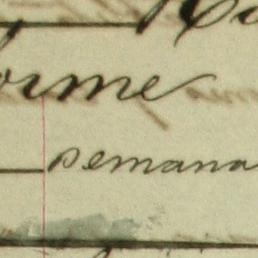 orme
semana